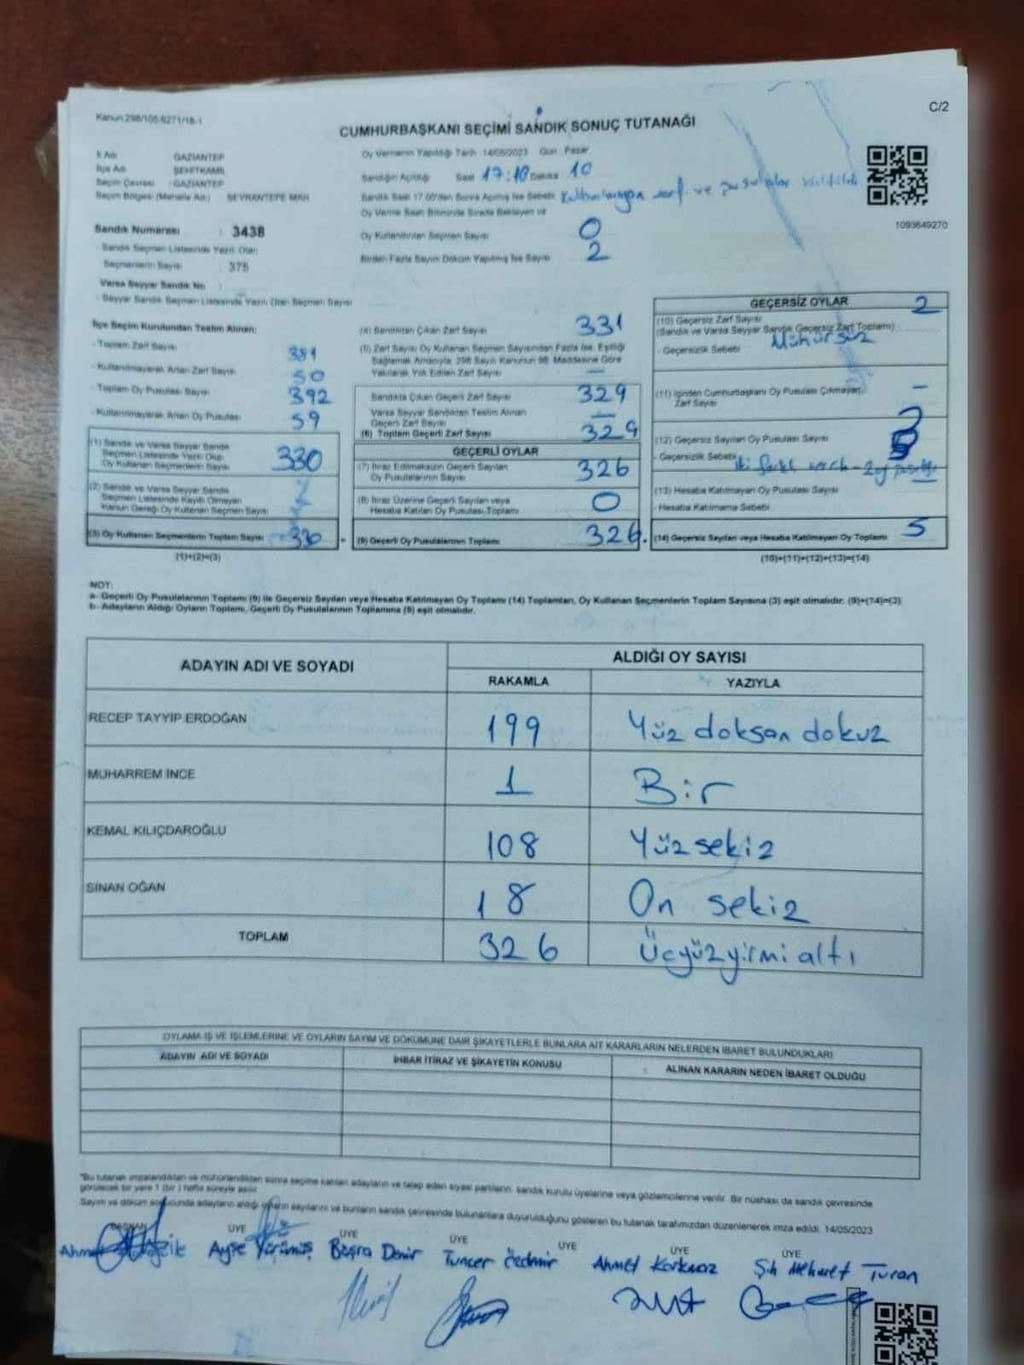 C/2
Kanun:298/105-6271/18-1
CUMHURBAŞKANI SEÇİMİ SANDIK SONUÇ TUTANAĞI
İl Adı GAZİANTEP
İlçe Adı ŞEHİTKAMİL
Seçim Çevresi : GAZİANTEP
Seçim Bölgesi (Mahalle Adı) : SEYRANTEPE MAH
Sandık Numarası : 3438
- Sandık Seçmen Listesinde Yazılı Olan
Seçmenlerin Sayısı : 375
Varsa Seyyar Sandık No :
- Seyyar Sandık Seçmen Listesinde Yazılı Olan Seçmen Sayısı
Oy Vermenin Yapıldığı Tarih 14/05/2023 Gün : Pazar
Sandığın Açıldığı Saat 17:10 Dakika 10
Sandık Saat 17.00'den Sonra Açılmış İse Sebebi zarf ve pusulalar
Oy Verme Saati Bitiminde Sırada Bekleyen ve
Oy Kullandırılan Seçmen Sayısı 0
Birden Fazla Sayım Döküm Yapılmış İse Sayısı 2
1093649270
İlçe Seçim Kurulundan Teslim Alınan:
- Toplam Zarf Sayısı 381
- Kullanılmayarak Artan Zarf Sayısı 50
- Toplam Oy Pusulası Sayısı 392
- Kullanılmayarak Artan Oy Pusulası 59
(1) Sandık ve Varsa Seyyar Sandık
Seçmen Listesinde Yazılı Olup
Oy Kullanan Seçmenlerin Sayısı 330
(2) Sandık ve Varsa Seyyar Sandık
Seçmen Listesinde Kayıtlı Olmayan
Kanun Gereği Oy Kullanan Seçmen Sayısı
(3) Oy Kullanan Seçmenlerin Toplam Sayısı 330
(1)+(2)=(3)
(4) Sandıktan Çıkan Zarf Sayısı 331
(5) Zarf Sayısı Oy Kullanan Seçmen Sayısından Fazla İse, Eşitliği
Sağlamak Amacıyla, 298 Sayılı Kanunun 98. Maddesine Göre
Yakılarak Yok Edilen Zarf Sayısı —
Sandıkta Çıkan Geçerli Zarf Sayısı 329
Varsa Seyyar Sandıktan Teslim Alınan
Geçerli Zarf Sayısı —
(6) Toplam Geçerli Zarf Sayısı 329
GEÇERLİ OYLAR
(7) İtiraz Edilmeksizin Geçerli Sayılan
Oy Pusulalarının Sayısı 326
(8) İtiraz Üzerine Geçerli Sayılan veya
Hesaba Katılan Oy Pusulası Toplamı 0
(9) Geçerli Oy Pusulalarının Toplamı 326
GEÇERSİZ OYLAR
(10) Geçersiz Zarf Sayısı 2
(Sandık ve Varsa Seyyar Sandık Geçersiz Zarf Toplamı)
- Geçersizlik Sebebi Mühürsüz
(11) İçinden Cumhurbaşkanı Oy Pusulası Çıkmayan
Zarf Sayısı —
(12) Geçersiz Sayılan Oy Pusulası Sayısı
- Geçersizlik Sebebi iki farklı
(13) Hesaba Katılmayan Oy Pusulası Sayısı
- Hesaba Katılmama Sebebi
(14) Geçersiz Sayılan veya Hesaba Katılmayan Oy Toplamı 5
(10)+(11)+(12)+(13)=(14)
NOT:
a- Geçerli Oy Pusulalarının Toplamı (9) ile Geçersiz Sayılan veya Hesaba Katılmayan Oy Toplamı (14) Toplamları, Oy Kullanan Seçmenlerin Toplam Sayısına (3) eşit olmalıdır. (9)+(14)=(3)
b- Adayların Aldığı Oyların Toplamı, Geçerli Oy Pusulalarının Toplamına (9) eşit olmalıdır.
ADAYIN ADI VE SOYADI ALDIĞI OY SAYISI
RAKAMLA YAZIYLA
RECEP TAYYİP ERDOĞAN 199 Yüz doksan dokuz
MUHARREM İNCE 1 Bir
KEMAL KILIÇDAROĞLU 108 Yüz sekiz
SİNAN OĞAN 18 On sekiz
TOPLAM 326 Üçyüzyirmi altı
OYLAMA İŞ VE İŞLEMLERİNE VE OYLARIN SAYIM VE DÖKÜMÜNE DAİR ŞİKAYETLERLE BUNLARA AİT KARARLARIN NELERDEN İBARET BULUNDUKLARI
ADAYIN ADI VE SOYADI İHBAR İTİRAZ VE ŞİKAYETİN KONUSU ALINAN KARARIN NEDEN İBARET OLDUĞU
*Bu tutanak imzalandıktan ve mühürlendikten sonra seçime katılan adayların ve talep eden siyasi partilerin sandık kurulu üyelerine veya gözlemcilerine verilir. Bir nüshası da sandık çevresinde
görülecek bir yere 1 (bir) hafta süreyle asılır.
Sayım ve döküm sonucunda adayların aldığı oyların sayılarını ve bunların sandık çevresinde bulunanlara duyurulduğunu gösteren bu tutanak tarafımızdan düzenlenerek imza edildi. 14/05/2023
BAŞKAN ÜYE ÜYE ÜYE ÜYE ÜYE ÜYE
Ahmet Ayşe Yürümüş Büşra Demir Tuncer Özdemir Ahmet Korkmaz Şıh Mehmet Turan